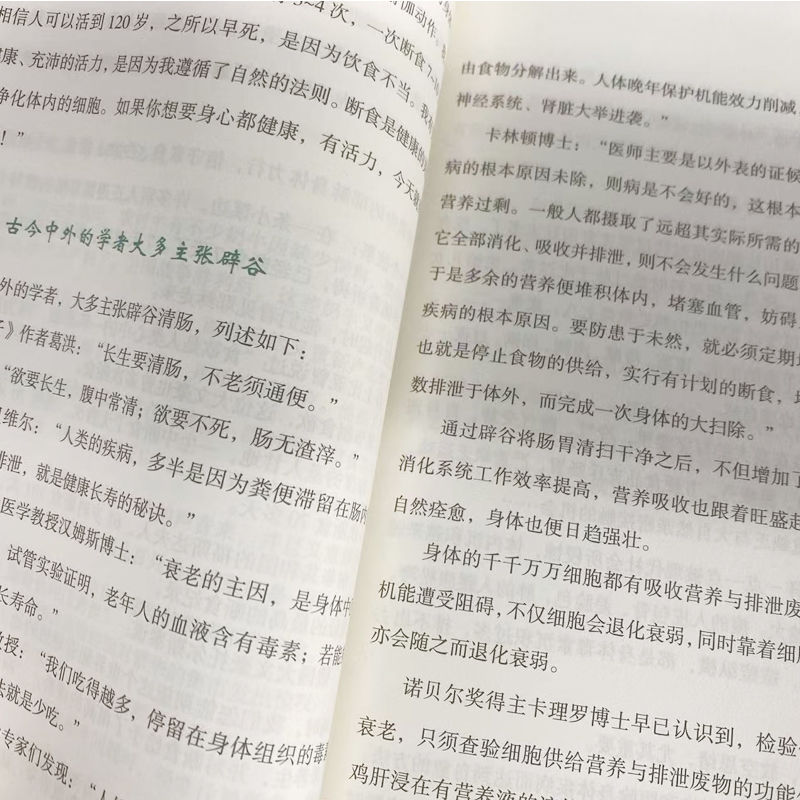 3~4次，一次断食7~
相信人可以活到120岁，之所以早死，是因为饮食不当。我
健康、充沛的活力，是因为我遵循了自然的法则。断食是健康的
净化体内的细胞。如果你想要身心都健康，有活力，今天
！”
古今中外的学者大多主张辟谷
外的学者，大多主张辟谷清肠，列述如下：
子》作者葛洪：“长生要清肠，不老须通便。”
“欲要长生，腹中常清；欲要不死，肠无渣滓。”
维尔：“人类的疾病，多半是因为粪便滞留在肠内
排泄，就是健康长寿的秘诀。”
医学教授汉姆斯博士：“衰老的主因，是身体中
试管实验证明，老年人的血液含有毒素；若能
长寿命。”
教授：“我们吃得越多，停留在身体组织的毒
法就是少吃。”
专家们发现：“人
由食物分解出来。人体晚年保护机能效力削减
神经系统、肾脏大举进袭。”
卡林顿博士：“医师主要是以外表的证候
病的根本原因未除，则病是不会好的，这根本
营养过剩。一般人都摄取了远超其实际所需的
它全部消化、吸收并排泄，则不会发生什么问题
于是多余的营养便堆积体内，堵塞血管，妨碍
疾病的根本原因。要防患于未然，就必须定期
也就是停止食物的供给，实行有计划的断食，
数排泄于体外，而完成一次身体的大扫除。”
通过辟谷将肠胃清扫干净之后，不但增加了
消化系统工作效率提高，营养吸收也跟着旺盛起
自然痊愈，身体也便日趋强壮。
身体的千千万万细胞都有吸收营养与排泄废
机能遭受阻碍，不仅细胞会退化衰弱，同时靠着细
亦会随之而退化衰弱。
诺贝尔奖得主卡理罗博士早已认识到，检验
衰老，只须查验细胞供给营养与排泄废物的功能
鸡肝浸在有营养液的